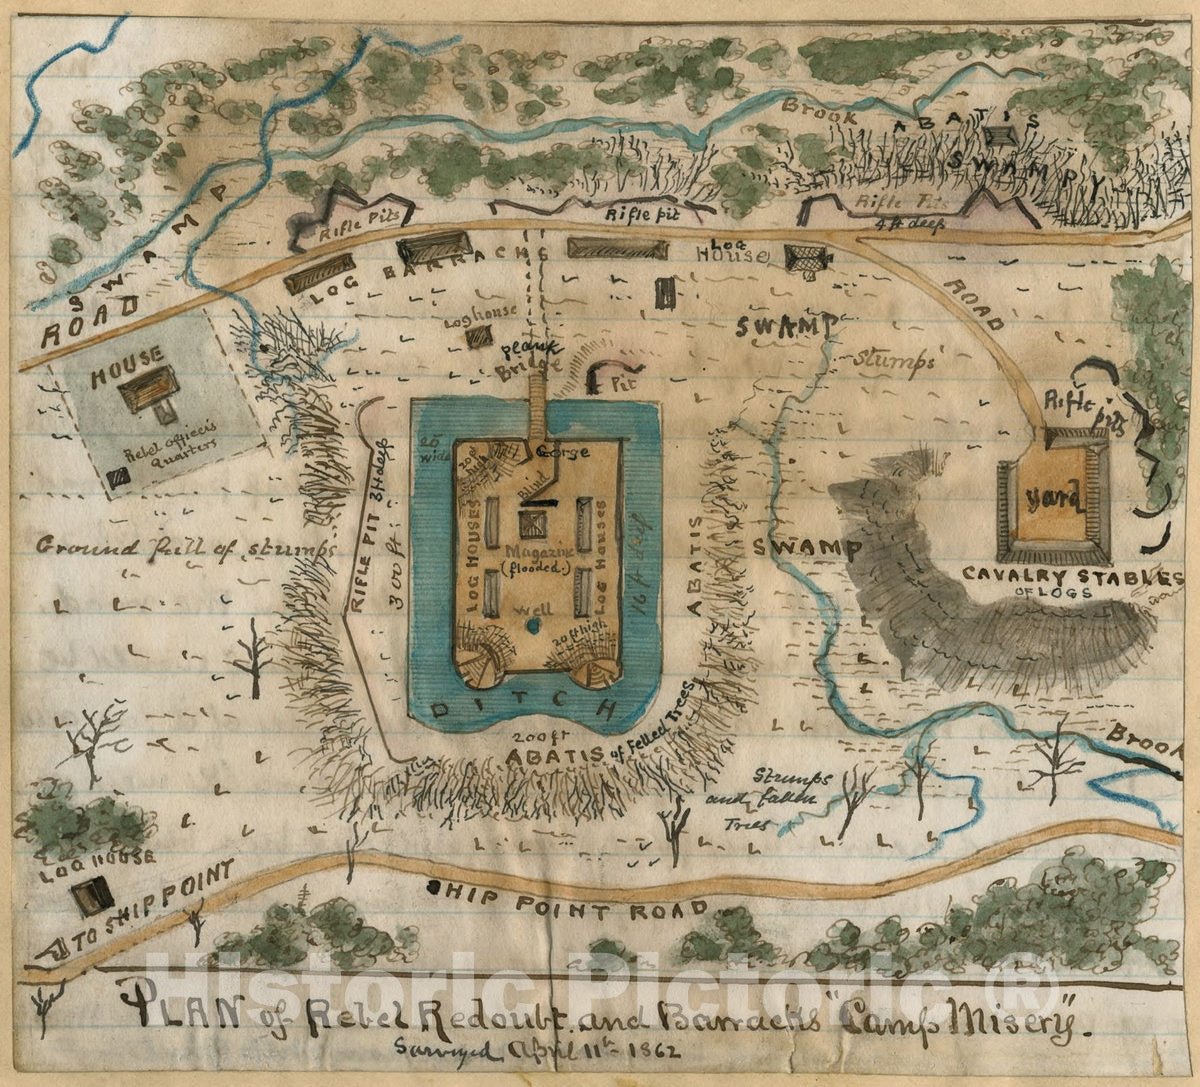 Brook
ABATIS
SWAMPY
SWAMP
Rifle Pits
Rifle pit
Rifle Pits
4 ft deep
LOG BARRACKS
Log
House
ROAD
HOUSE
Rebel officers
quarters
Loghouse
plank
Bridge
Pit
SWAMP
Stumps
ROAD
Rifle pits
yard
CAVALRY STABLES
OF LOGS
20
wide
20 ft
high
Gorge
Blind
LOG HOUSES
LOG HOUSES
Magazine
(flooded.)
Well
20 ft high
16 ft deep
DITCH
RIFLE PIT 3 ft deep
300 ft
Ground full of stumps
ABATIS
SWAMP
200 ft
ABATIS of Felled Trees
Stumps
and fallen
Trees
Brook
LOG HOUSE
TO SHIP POINT
SHIP POINT ROAD
PLAN of Rebel Redoubt. and Barracks "Camp Misery".
Surveyed April 11th 1862
Historic Pictoric ®